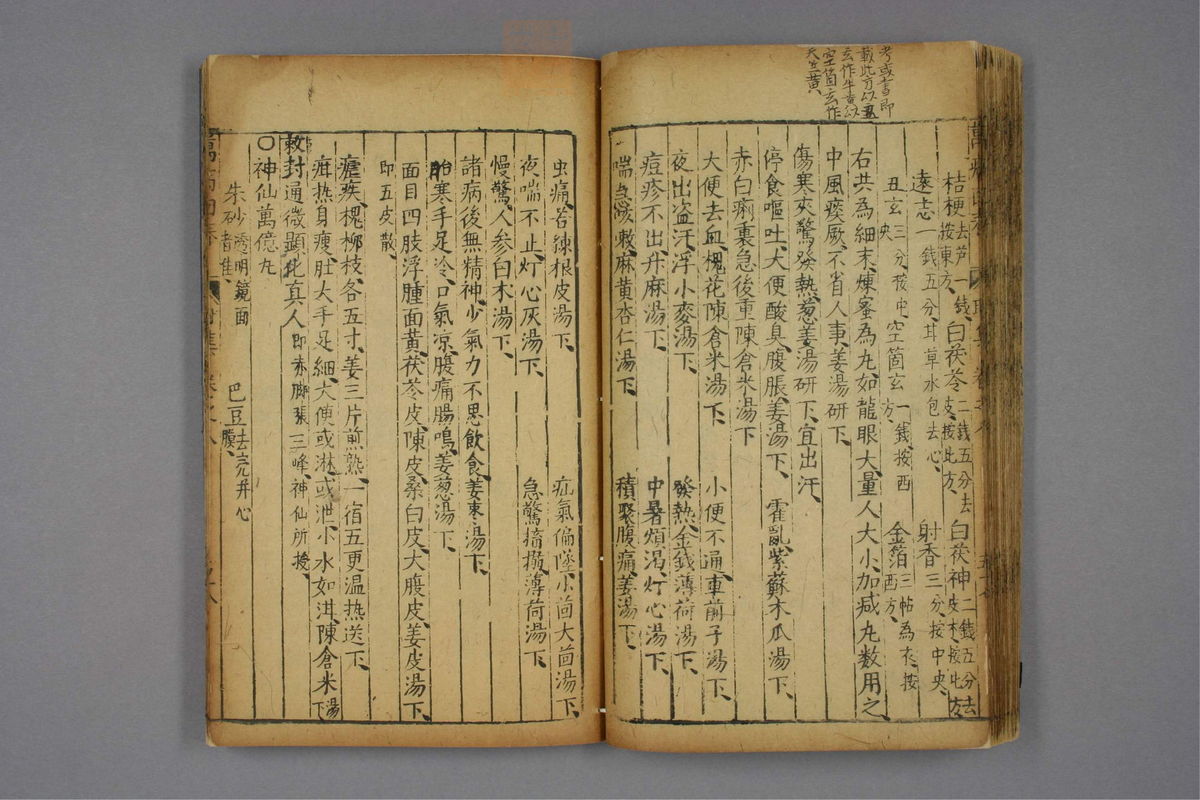 考或書即
載此方以丑
玄作牛黄以
空箇玄作
天竺黄
桔梗去芦一錢按東方 白茯苓二錢五分去皮按北方 白茯神二錢五分去皮木按北方
遠志一錢五分甘草水包去心 射香三分按中央
丑玄三分按中央 空箇玄一錢按西方 金箔三帖為衣按西方
右共為細末煉蜜為丸如龍眼大量人大小加减丸数用之
中風痰厥不省人事姜湯研下
傷寒夾驚發熱葱姜湯研下宜出汗
停食嘔吐大便酸臭腹脹姜湯下 霍亂紫蘇木瓜湯下
赤白痢裏急後重陳倉米湯下
大便去血槐花陳倉米湯下 小便不通車前子湯下
夜出盗汗浮小麥湯下 發熱金錢薄荷湯下
痘疹不出升麻湯下 中暑煩渴灯心湯下
喘急咳嗽麻黄杏仁湯下 積聚腹痛姜湯下
虫痛苦練根皮湯下 疝氣偏墜小茴大茴湯下
夜啼不止灯心灰湯下 急驚搐搦薄荷湯下
慢驚人参白术湯下
諸病後無精神少氣力不思飲食姜棗湯下
胎寒手足冷口氣凉腹痛腸鳴姜葱湯下
面目四肢浮腫面黄茯苓皮陳皮桑白皮大腹皮姜皮湯下
即五皮散
瘧疾槐柳枝各五寸姜三片煎熟一宿五更温热送下
疳热身瘦肚大手足細大便或淋或泄小水如泔陳倉米湯下
敕封通微顕化真人即赤脚張三峰神仙所授
○神仙萬億丸
朱砂透明鏡面者佳 巴豆去売并心膜